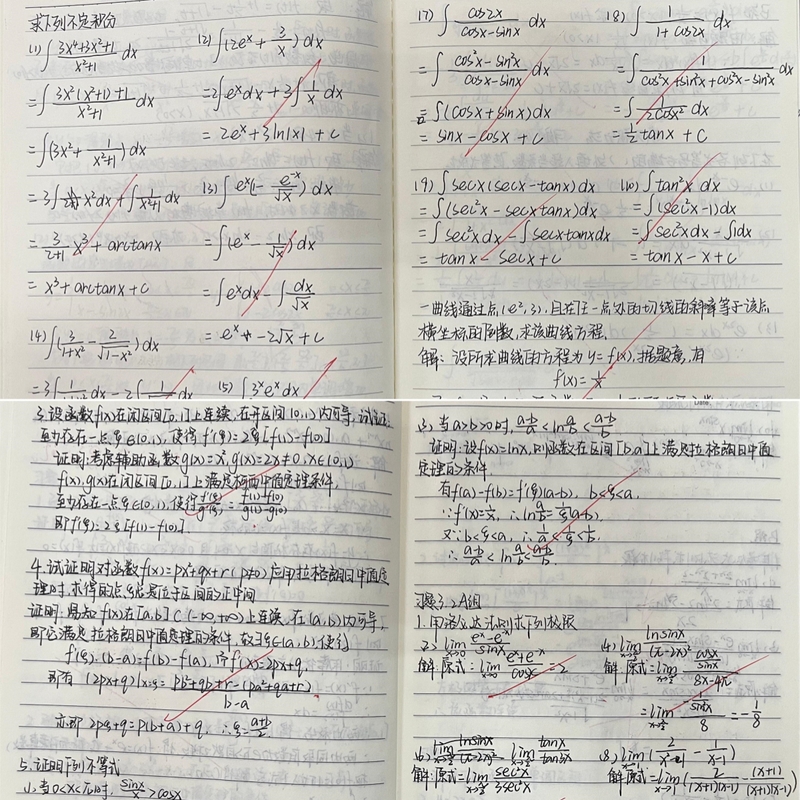 求下列不定积分
(1) ∫ (3x⁴+3x²+1)/(x²+1) dx
= ∫ (3x²(x²+1)+1)/(x²+1) dx
= ∫(3x² + 1/(x²+1)) dx
= 3∫ x²dx + ∫ 1/(x²+1) dx
= 3/(2+1) x³ + arctanx
= x³ + arctanx + c
(4) ∫(3/(1+x²) - 2/√(1-x²)) dx
(2) ∫(2eˣ + 3/x) dx
= 2∫eˣdx + 3∫ 1/x dx
= 2eˣ + 3ln|x| + c
(3) ∫ eˣ(1 - e⁻ˣ/√x) dx
= ∫(eˣ - 1/√x) dx
= ∫eˣdx - ∫ dx/√x
= eˣ - 2√x + c
(5) ∫ 3ˣeˣdx
(7) ∫ cos2x/(cosx-sinx) dx
= ∫ (cos²x-sin²x)/(cosx-sinx) dx
= ∫(cosx+sinx)dx
= sinx - cosx + c
(8) ∫ 1/(1+cos2x) dx
= ∫ 1/(cos²x+sin²x+cos²x-sin²x) dx
= ∫ 1/(2cosx²) dx
= 1/2 tanx + c
(9) ∫ secx(secx-tanx)dx
= ∫(sec²x - secxtanx)dx
= ∫sec²xdx - ∫secxtanxdx
= tanx - secx + c
(10) ∫tan²x dx
= ∫(sec²x-1)dx
= ∫sec²xdx - ∫1dx
= tanx - x + c
一曲线通过点(e²,3),且在任一点处的切线的斜率等于该点
横坐标的倒数,求该曲线方程.
解:设所求曲线的方程为y=f(x),据题意,有
f'(x)= 1/x
3.设函数f(x)在闭区间[0,1]上连续,在开区间(0,1)内可导,试证:
至少存在一点ξ∈(0,1),使得f'(ξ)=2ξ[f(1)-f(0)]
证明:考虑辅助函数g(x)=x²,g'(x)=2x≠0,x∈(0,1)
f(x),g(x)在闭区间[0,1]上满足柯西中值定理条件,
至少存在一点ξ∈(0,1),使得 f'(ξ)/g'(ξ) = (f(1)-f(0))/(g(1)-g(0))
即f'(ξ)=2ξ[f(1)-f(0)].
4.试证明对函数f(x)=px²+qx+r(p≠0)应用拉格朗日中值定
理时,求得的点ξ总是位于区间的正中间
证明:易知f(x)在[a,b]⊂(-∞,+∞)上连续,在(a,b)内可导,
即它满足拉格朗日中值定理的条件,故∃ξ∈(a,b)使得
f'(ξ)·(b-a)=f(b)-f(a),而f'(x)=2px+q,
即有 (2px+q)|x=ξ = (pb²+qb+r-(pa²+qa+r))/(b-a)
亦即 2pξ+q=p(b+a)+q, ∴ξ=(a+b)/2
5.证明下列不等式
(3)当a>b>0时, (a-b)/a < ln a/b < (a-b)/b
证明:设f(x)=lnx,则函数在区间[b,a]上满足拉格朗日中值
定理的条件
有f(a)-f(b)=f'(ξ)(a-b), b<ξ<a.
∵f'(x)=1/x, ∴ln a/b = 1/ξ(a-b),
又∵b<ξ<a, ∴1/a<1/ξ<1/b.
∴ (a-b)/a < ln a/b < (a-b)/b
习题3.2A组
1.用洛必达法则求下列极限
(2) lim x→0 (eˣ-e⁻ˣ)/sinx
解:原式=lim x→0 (eˣ+e⁻ˣ)/cosx =2
(4) lim x→π/2 lnsinx/(π-2x)²